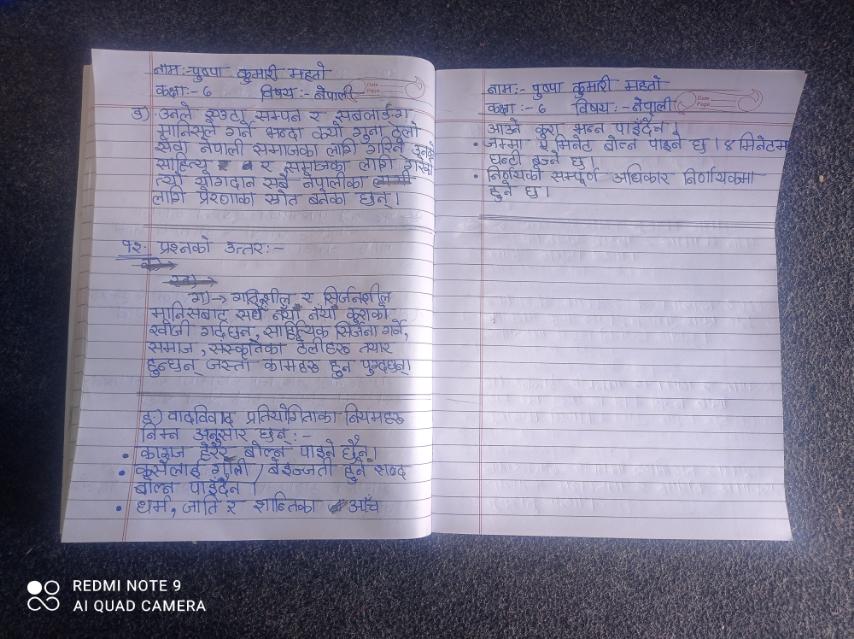 नाम:- पुष्पा कुमारी महतो
कक्षा:- ६ विषय:- नेपाली
ङ) उनले एउटा सम्पन्न र सबलाङ्ग
मानिसले गर्ने भन्दा कयौं गुना ठूलो
सेवा नेपाली समाजका लागि गरिन् उनको
साहित्य र समाजका लागि गरेको
त्यो योगदान सबै नेपालीका
लागि प्रेरणाको स्रोत बनेका छन्।
१२. प्रश्नको उत्तर:-
ग) → गतिशील र सिर्जनशील
मानिसबाट सधैं नयाँ नयाँ कुराको
खोजी गर्दछन्, साहित्यिक सिर्जना गर्ने,
समाज, संस्कृतिका टेलीहरू तयार
हुन्छन् जस्ता कामहरू हुन पुग्दछन्।
ङ) वादविवाद प्रतियोगिताका नियमहरू
निम्न अनुसार छन्:-
• कागज हेरेर बोल्न पाइने छैन।
• कसैलाई गाली / बेइज्जती हुने शब्द
बोल्न पाइँदैन।
• धर्म, जाति र शान्तिका आँच
नाम:- पुष्पा कुमारी महतो
कक्षा:- ६ विषय:- नेपाली
आउने कुरा भन्न पाइँदैन।
• जम्मा ५ मिनेट बोल्न पाइने छ। ४ मिनेटमा
घन्टी बज्ने छ।
• निर्णयको सम्पूर्ण अधिकार निर्णायकमा
हुने छ।
REDMI NOTE 9
AI QUAD CAMERA